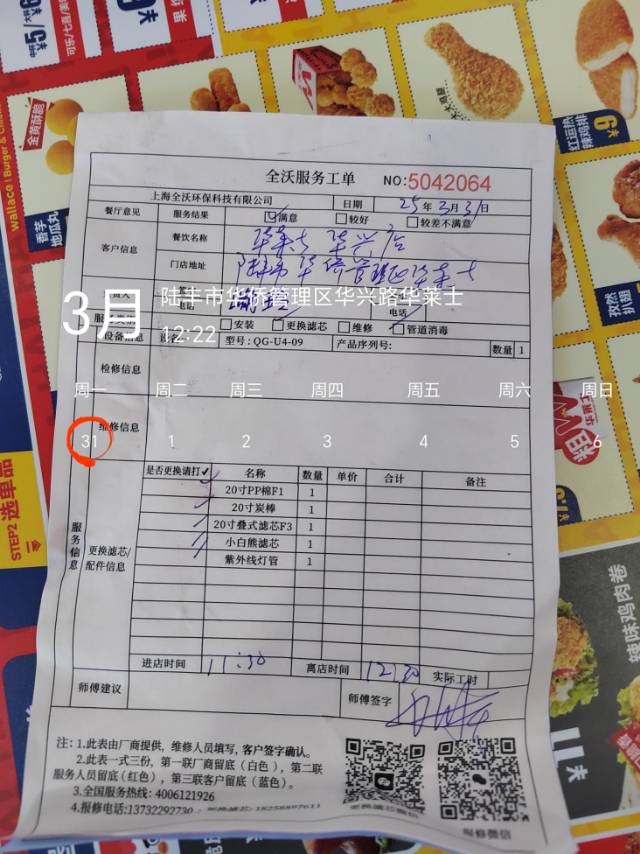 全沃服务工单 NO:5042064
上海全沃环保科技有限公司 日期 25年3月31日
餐厅意见 服务结果 满意 较好 较差不满意
客户信息 餐饮名称 华莱士 华兴店
门店地址 陆丰市华侨管理区华莱士
电话 电话
3月 陆丰市华侨管理区华兴路华莱士
12:22
安装 更换滤芯 维修 管道消毒
设备信息 型号:QG-U4-09 产品序列号: 数量 1
检修信息
周一 周二 周三 周四 周五 周六 周日
维修信息
31 1 2 3 4 5 6
服务信息
更换滤芯/配件信息
是否更换请打✓ 名称 数量 单价 合计 备注
✓ 20寸PP棉F1 1
✓ 20寸炭棒 1
✓ 20寸叠式滤芯F3 1
✓ 小白熊滤芯 1
紫外线灯管 1
进店时间 11:30 离店时间 12:30 实际工时
师傅建议 师傅签字
注:1.此表由厂商提供,维修人员填写,客户签字确认。
2.此表一式三份,第一联厂商留底(白色),第二联
服务人员留底(红色),第三联客户留底(蓝色)。
3.全国服务热线:4006121926
4.报修电话:13732292730
金黄酥脆
wallace | Burger &
香芋地瓜丸
STEP2 选单品
红运热辣鸡排
6元
孜然扒翅
辣味鸡肉卷
11元